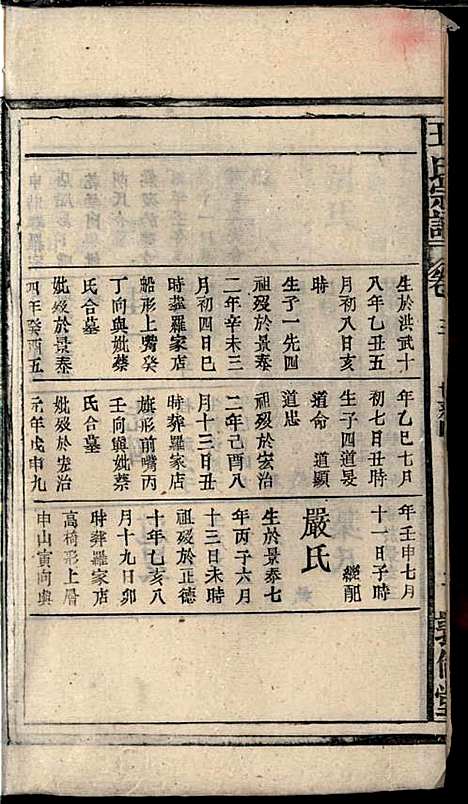 王氏宗譜
卷
五
敦倫堂
生於洪武十
八年乙丑五
月初八日亥
時
生子一先四
祖歿於景泰
二年辛未三
月初四日巳
時塟羅家店
船形上嘴癸
丁向與妣蔡
氏合墓
妣歿於景泰
四年癸酉五
年乙巳七月
初七日丑時
生子四道旻
道命 道顯
道忠
祖歿於宏治
二年己酉八
月十三日丑
時葬羅家店
旗形前嘴丙
壬向與妣蔡
氏合墓
妣歿於宏治
元年戊申九
年壬申七月
十一日子時
繼配
嚴氏
生於景泰七
年丙子六月
十三日未時
祖歿於正德
十年乙亥八
月十九日卯
時葬羅家店
高椅形上層
申山寅向與